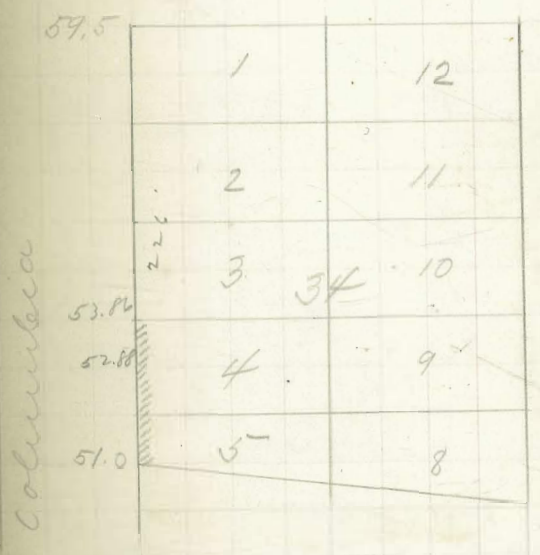 59.5
1 12
2 11
226
3 34 10
53.86
52.88
4 9
51.0
5 8
Columbia